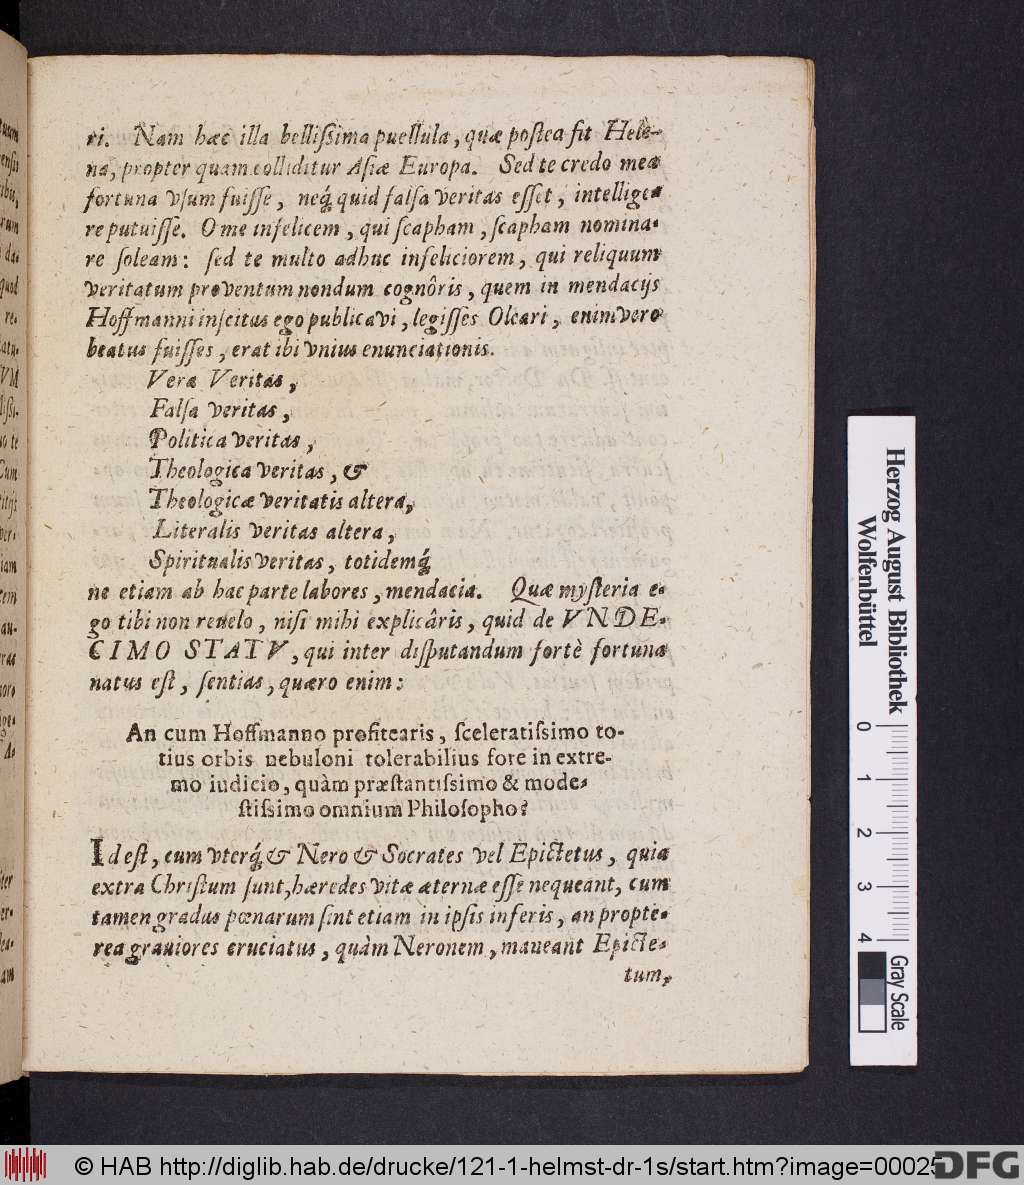 ri. Nam hæc illa bellißima puellula, quæ postea fit Hele-
na, propter quam colliditur Asiæ Europa. Sed te credo mea
fortuna vsum fuisse, neq́ quid falsa veritas esset, intellige-
re putuisse. O me infelicem, qui scapham, scapham nomina-
re soleam: sed te multo adhuc infeliciorem, qui reliquum
veritatum proventum nondum cognôris, quem in mendacijs
Hoffmanni inscitus ego publicavi, legisses Oleari, enimvero
beatus fuisses, erat ibi vnius enunciationis.
Veræ Veritas,
Falsa veritas,
Politica veritas,
Theologica veritas, &
Theologicæ veritatis altera,
Literalis veritas altera,
Spiritualis veritas, totidemq́
ne etiam ab hac parte labores, mendacia. Quæ mysteria e-
go tibi non reuelo, nisi mihi explicâris, quid de VNDE-
CIMO STATV, qui inter disputandum fortè fortuna
natus est, sentias, quæro enim:
An cum Hoffmanno profitearis, sceleratissimo to-
tius orbis nebuloni tolerabilius fore in extre-
mo iudicio, quàm præstantissimo & mode-
stissimo omnium Philosopho?
Id est, cum vterq́ & Nero & Socrates vel Epictetus, quia
extra Christum sunt, hæredes vitæ æternæ esse nequeant, cum
tamen gradus pœnarum sint etiam in ipsis inferis, an propte-
rea grauiores cruciatus, quàm Neronem, maueant Epicte-
tum,
Herzog August Bibliothek
Wolfenbüttel
0 1 2 3 4
Gray Scale
© HAB http://diglib.hab.de/drucke/121-1-helmst-dr-1s/start.htm?image=00025
DFG